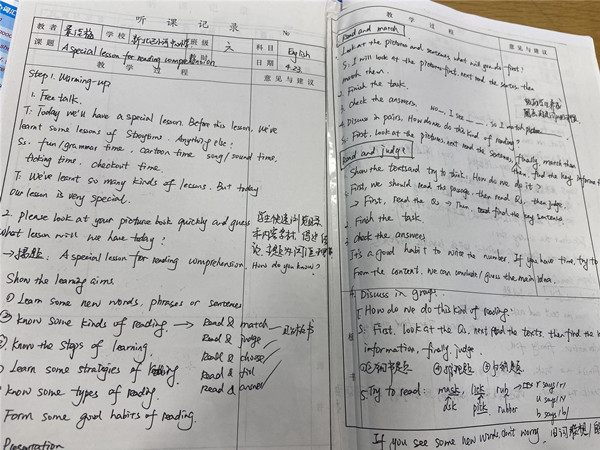 听 课 记 录
№
教者
学校
班级
课题
科目 English
日期 4.23
A special lesson for reading comprehension
教 学 过 程
意 见 与 建 议
Step 1. Warming-up
1. Free talk.
T: Today we'll have a special lesson. Before this lesson, we've
learnt some lessons of Storytime. Anything else?
Ss: fun/grammar time, cartoon time song/sound time.
ticking time, checkout time.
T: We've learnt so many kinds of lessons. But today
our lesson is very special.
2. Please look at your picture book quickly and guess
what lesson will we have today?
→课题: A special lesson for reading comprehension. How do you know?
Show the learning aims.
① Learn some new words, phrases or sentences
② Know some kinds of reading. → Read & match
Read & judge
Read & choose
Read & fill
Read & answer
Know the steps of learning.
Learn some strategies of reading.
Know some types of reading.
Form some good habits of reading.
Presentation
教 学 过 程
意 见 与 建 议
Read and match
Look at the pictures and sentences what will you do first?
S: I will look at the pictures first, next read the sentences. then
match them.
2. Finish the task.
3. check the answers.
4. Discuss in pairs. How do we do this kind of reading?
S: First, look at the pictures, next read the sentences, finally, match them
Read and judge
Show the text and try to think. How do we do it?
First, we should read the passage, then read Qs, then judge
→ First, read the Qs → Then, read find the key sentences
2. Finish the task.
3. check the answers
It's a good habit to write the number. If you have time, try to
From the context, we can conclude/guess the main idea.
4. Discuss in groups.
T: How do we do this kind of reading?
S: First, look at the Qs, next read the texts, then find the
information, finally, judge.
5. Try to read: mask, risk rub
ask pick rubber
If you see some new words, don't worry.